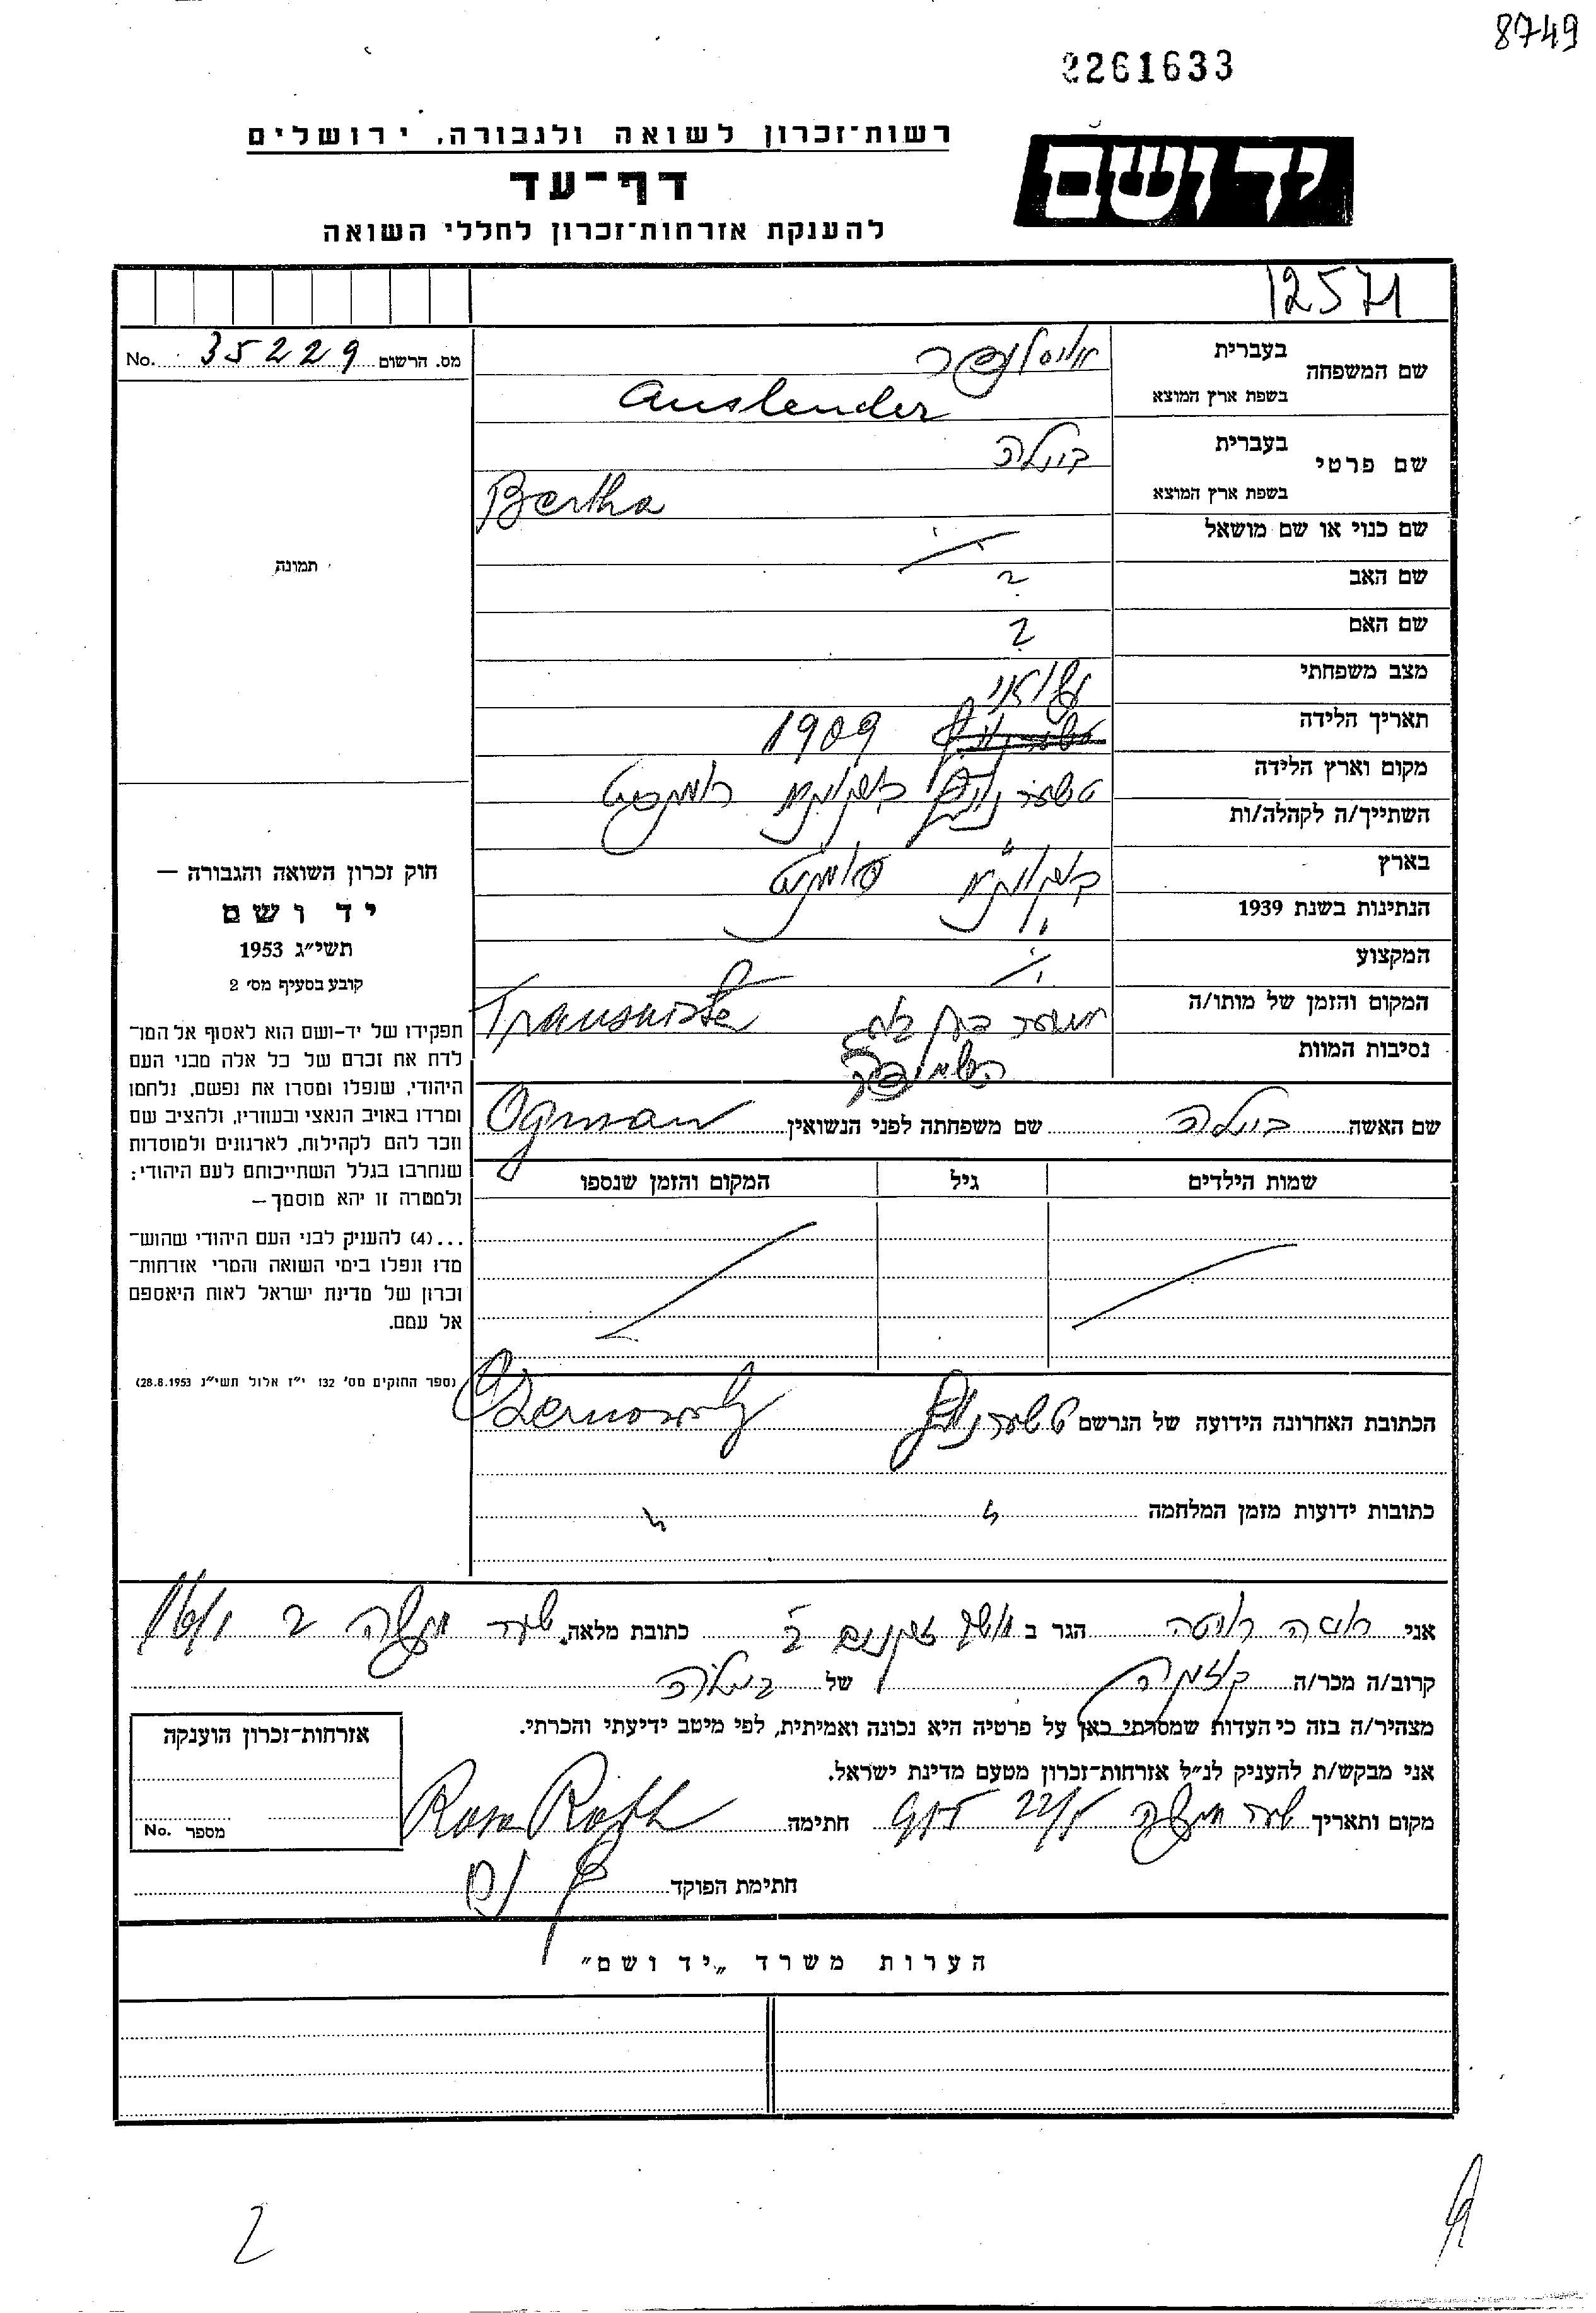 8749
2261633
ידושם
רשות־זכרון לשואה ולגבורה, ירושלים
דף־עד
להענקת אזרחות־זכרון לחללי השואה
12571
מס. הרשום 35229 No.
שם המשפחה בעברית אויסלנדר
בשפת ארץ המוצא Auslender
שם פרטי בעברית
בשפת ארץ המוצא Bertha
שם כנוי או שם מושאל
שם האב ?
שם האם ?
מצב משפחתי נשואי
תאריך הלידה 1909
מקום וארץ הלידה טשרנוביץ בוקובינה
השתייך/ה לקהלה/ות
בארץ בוקובינה
הנתינות בשנת 1939
המקצוע
המקום והזמן של מותו/ה Transnistr
נסיבות המוות
תמונה
חוק זכרון השואה והגבורה —
יד ושם
תשי״ג 1953
קובע בסעיף מס׳ 2
תפקידו של יד-ושם הוא לאסוף אל המו־
לדת את זכרם של כל אלה מבני העם
היהודי, שנפלו ומסרו את נפשם, נלחמו
ומרדו באויב הנאצי ובעוזריו, ולהציב שם
וזכר להם לקהילות, לארגונים ולמוסדות
שנחרבו בגלל השתייכותם לעם היהודי;
ולמטרה זו יהא מוסמך—
...(4) להעניק לבני העם היהודי שהוש־
מדו ונפלו בימי השואה והמרי אזרחות־
זכרון של מדינת ישראל לאות היאספם
אל עמם.
(ספר החוקים מס׳ 132 י״ז אלול תשי״ג 28.8.1953)
שם האשה שם משפחתה לפני הנשואין Ogman
שמות הילדים גיל המקום והזמן שנספו
הכתובת האחרונה הידועה של הנרשם טשרנוביץ Czernowitz
כתובות ידועות מזמן המלחמה
אני רוזה רוטה הגר ב כתובת מלאה
קרוב/ה מכר/ה של
מצהיר/ה בזה כי העדות שמסרתי כאן על פרטיה היא נכונה ואמיתית, לפי מיטב ידיעתי והכרתי.
אני מבקש/ת להעניק לנ״ל אזרחות־זכרון מטעם מדינת ישראל.
מקום ותאריך חתימה Rosa Roth
חתימת הפוקד
אזרחות־זכרון הוענקה
מספר No.
הערות משרד „יד ושם״
2